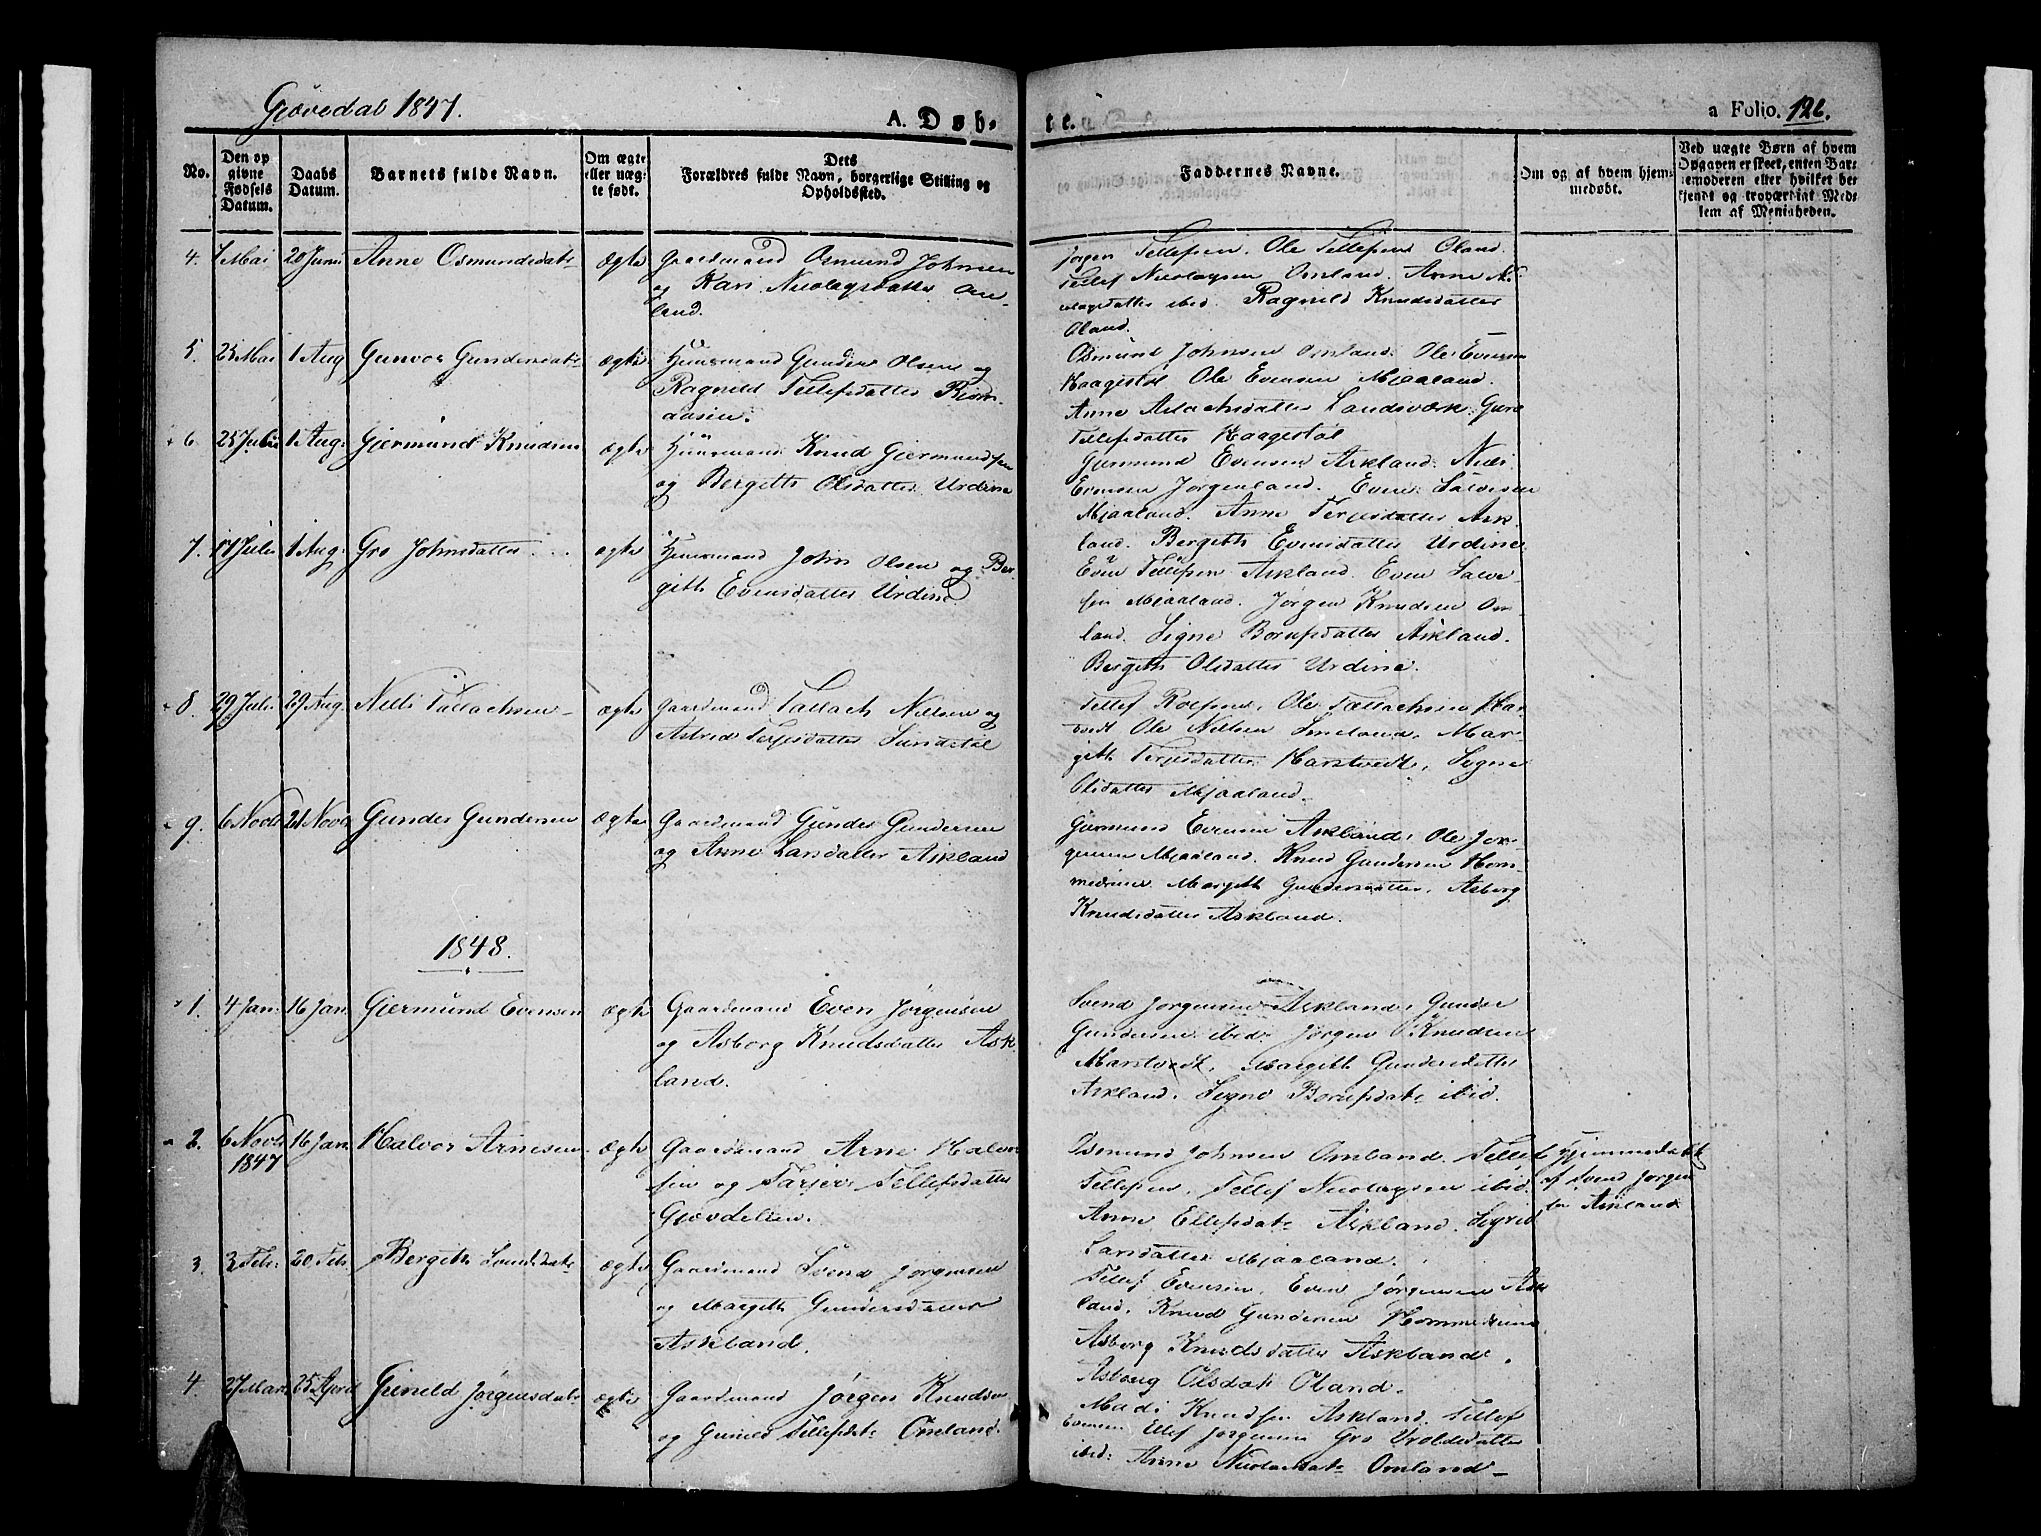 Giøvedal 1847.
A. Døb-
te.
a Folio. 126.
No.
Den op
givne
Fødsels
Datum.
Daabs
Datum.
Barnets fulde Navn.
Om ægte
eller uæg-
te født.
Dets
Forældres fulde Navn, borgerlige Stilling og
Opholdssted.
Faddernes Navne.
Om og af hvem hjem-
medøbt.
Ved uægte Børn af hvem
Opgaven er skeet, enten Bar-
nemoderen eller hvilket be-
kjendt og troværdigt Med-
lem af Menigheden.
4. 7 Mai 20 Juni Anne Osmundsdatr ægte Gaardmand Osmund Johnsen
og Kari Nicolaysdatter Om-
land.
Jørgen Tellefsen. Ole Tellefsens Oland.
Tellef Nicolaysen Omland. Anne Ni-
colaysdatter ibid. Ragnild Knudsdatter
Oland.
5. 23 Mai 1 Aug Gunvor Gundersdatr ægte Huusmand Gunder Olsen og
Ragnild Tellefsdatter Biørn-
aasen.
Osmund Johnsen Omland. Ole Evensen
Haagestøl Ole Evensen Mjaaland.
Anne Aslachsdatter Landsværk.
Tellefsdatter Haagestøl
6. 25 Juli 1 Aug. Gjermund Knudsen ægte Huusmand Knud Gjermundsen
og Bergethe Olsdatter Urdine
Gjermund Evensen Askland. Niels
Evensen Jørgenland. Even Salvesen
Mjaaland. Anne Terjesdatter Ask-
land. Bergeth Evensdatter Urdine
7. 17 Juli 1 Aug. Gro Johnsdatter ægte Huusmand John Olsen og Ber-
gith Evensdatter Urdine
Even Tellefsen Askland. Even Salve-
sen Mjaaland. Jørgen Knudsen Om-
land. Signe Borufsdatter Askland.
Bergeth Olsdatter Urdine.
8. 29 Juli 29 Aug. Nils Tallachsen ægte Gaardmand Tallach Nilsen og
Astrid Terjesdatter Sundstøl
Tellef Roefsen, Ole Tallachsen Har-
stvedt Ole Nielsen Smeland. Mar-
gith Terjesdatter Harstvedt, Signe
Olsdatter Mjaaland.
9. 6 Novb 21 Novb Gunder Gundersen ægte Gaardmand Gunder Gundersen
og Anne Larsdatter Askland
Gjermund Evensen Askland, Ole Jør-
gensen Mjaaland. Knud Gundersen Hom-
medrine Margith Gundersdatter, Asborg
Knudsdatter Askland.
1848.
1. 4 Jan. 16 Jan. Gjermund Evensen ægte Gaardmand Even Jørgensen
og Asborg Knudsdatter Ask-
land.
Svend Jørgensen Askland. Gunder
Gundersen ibid. Jørgen Knudsen
Harstvedt. Margith Gundersdatter
Askland. Signe Borufsdatr ibid.
2. 6 Novb 16 Jan. Halvor Arnesen ægte Gaardmand Arne Halvor-
1847
sen og Tarjer Tellefsdatter
Gjøvdelien.
Osmund Johnsen Omland. Tellef
Tellefsen, Tellef Nicolaysen ibid.
Anne Ellefsdatr Askland. Sigrid
Larsdatter Mjaaland.
Hjemmedøbt
af Svend Jørgen-
sen Askland
3. 3 Feb. 20 Feb. Bergith Svendsdatr ægte Gaardmand Svend Jørgensen
og Margith Gundersdatter
Askland.
Tellef Evensen. Even Jørgensen Ask-
land. Knud Gundersen Hommedrine
Asborg Knudsdatter Askland.
Asborg Olsdatr Oland.
4. 27 Mars 25 April Gunild Jørgensdatr ægte Gaardmand Jørgen Knudsen
og Gunild Tellefsdatr Omland.
Mads Knudsen Askland. Tellef
Evensen Ellef Jørgensen Gro Uroldsdatter
ibid: Anne Nicolaisdatr Omland